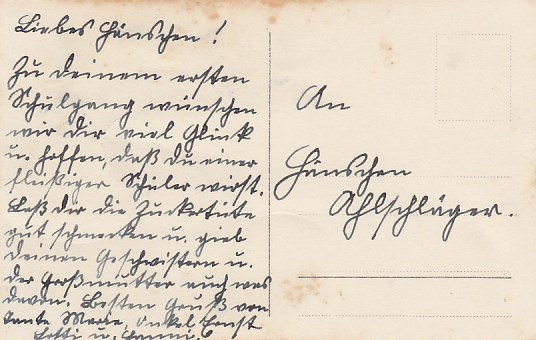 Liebes Hänschen!
Zu deinem ersten
Schulgang wünschen
wir dir viel Glück
u. hoffen, daß du einer
fleißiger Schüler wirst.
Laß dir die Zuckertüte
gut schmecken u. gieb
deinen Geschwistern u.
der Großmutter auch was
davon. Besten Gruß von
Tante Marie, Onkel Ernst
Lotti u. Hanni.
An
Hänschen
Ahlschläger.